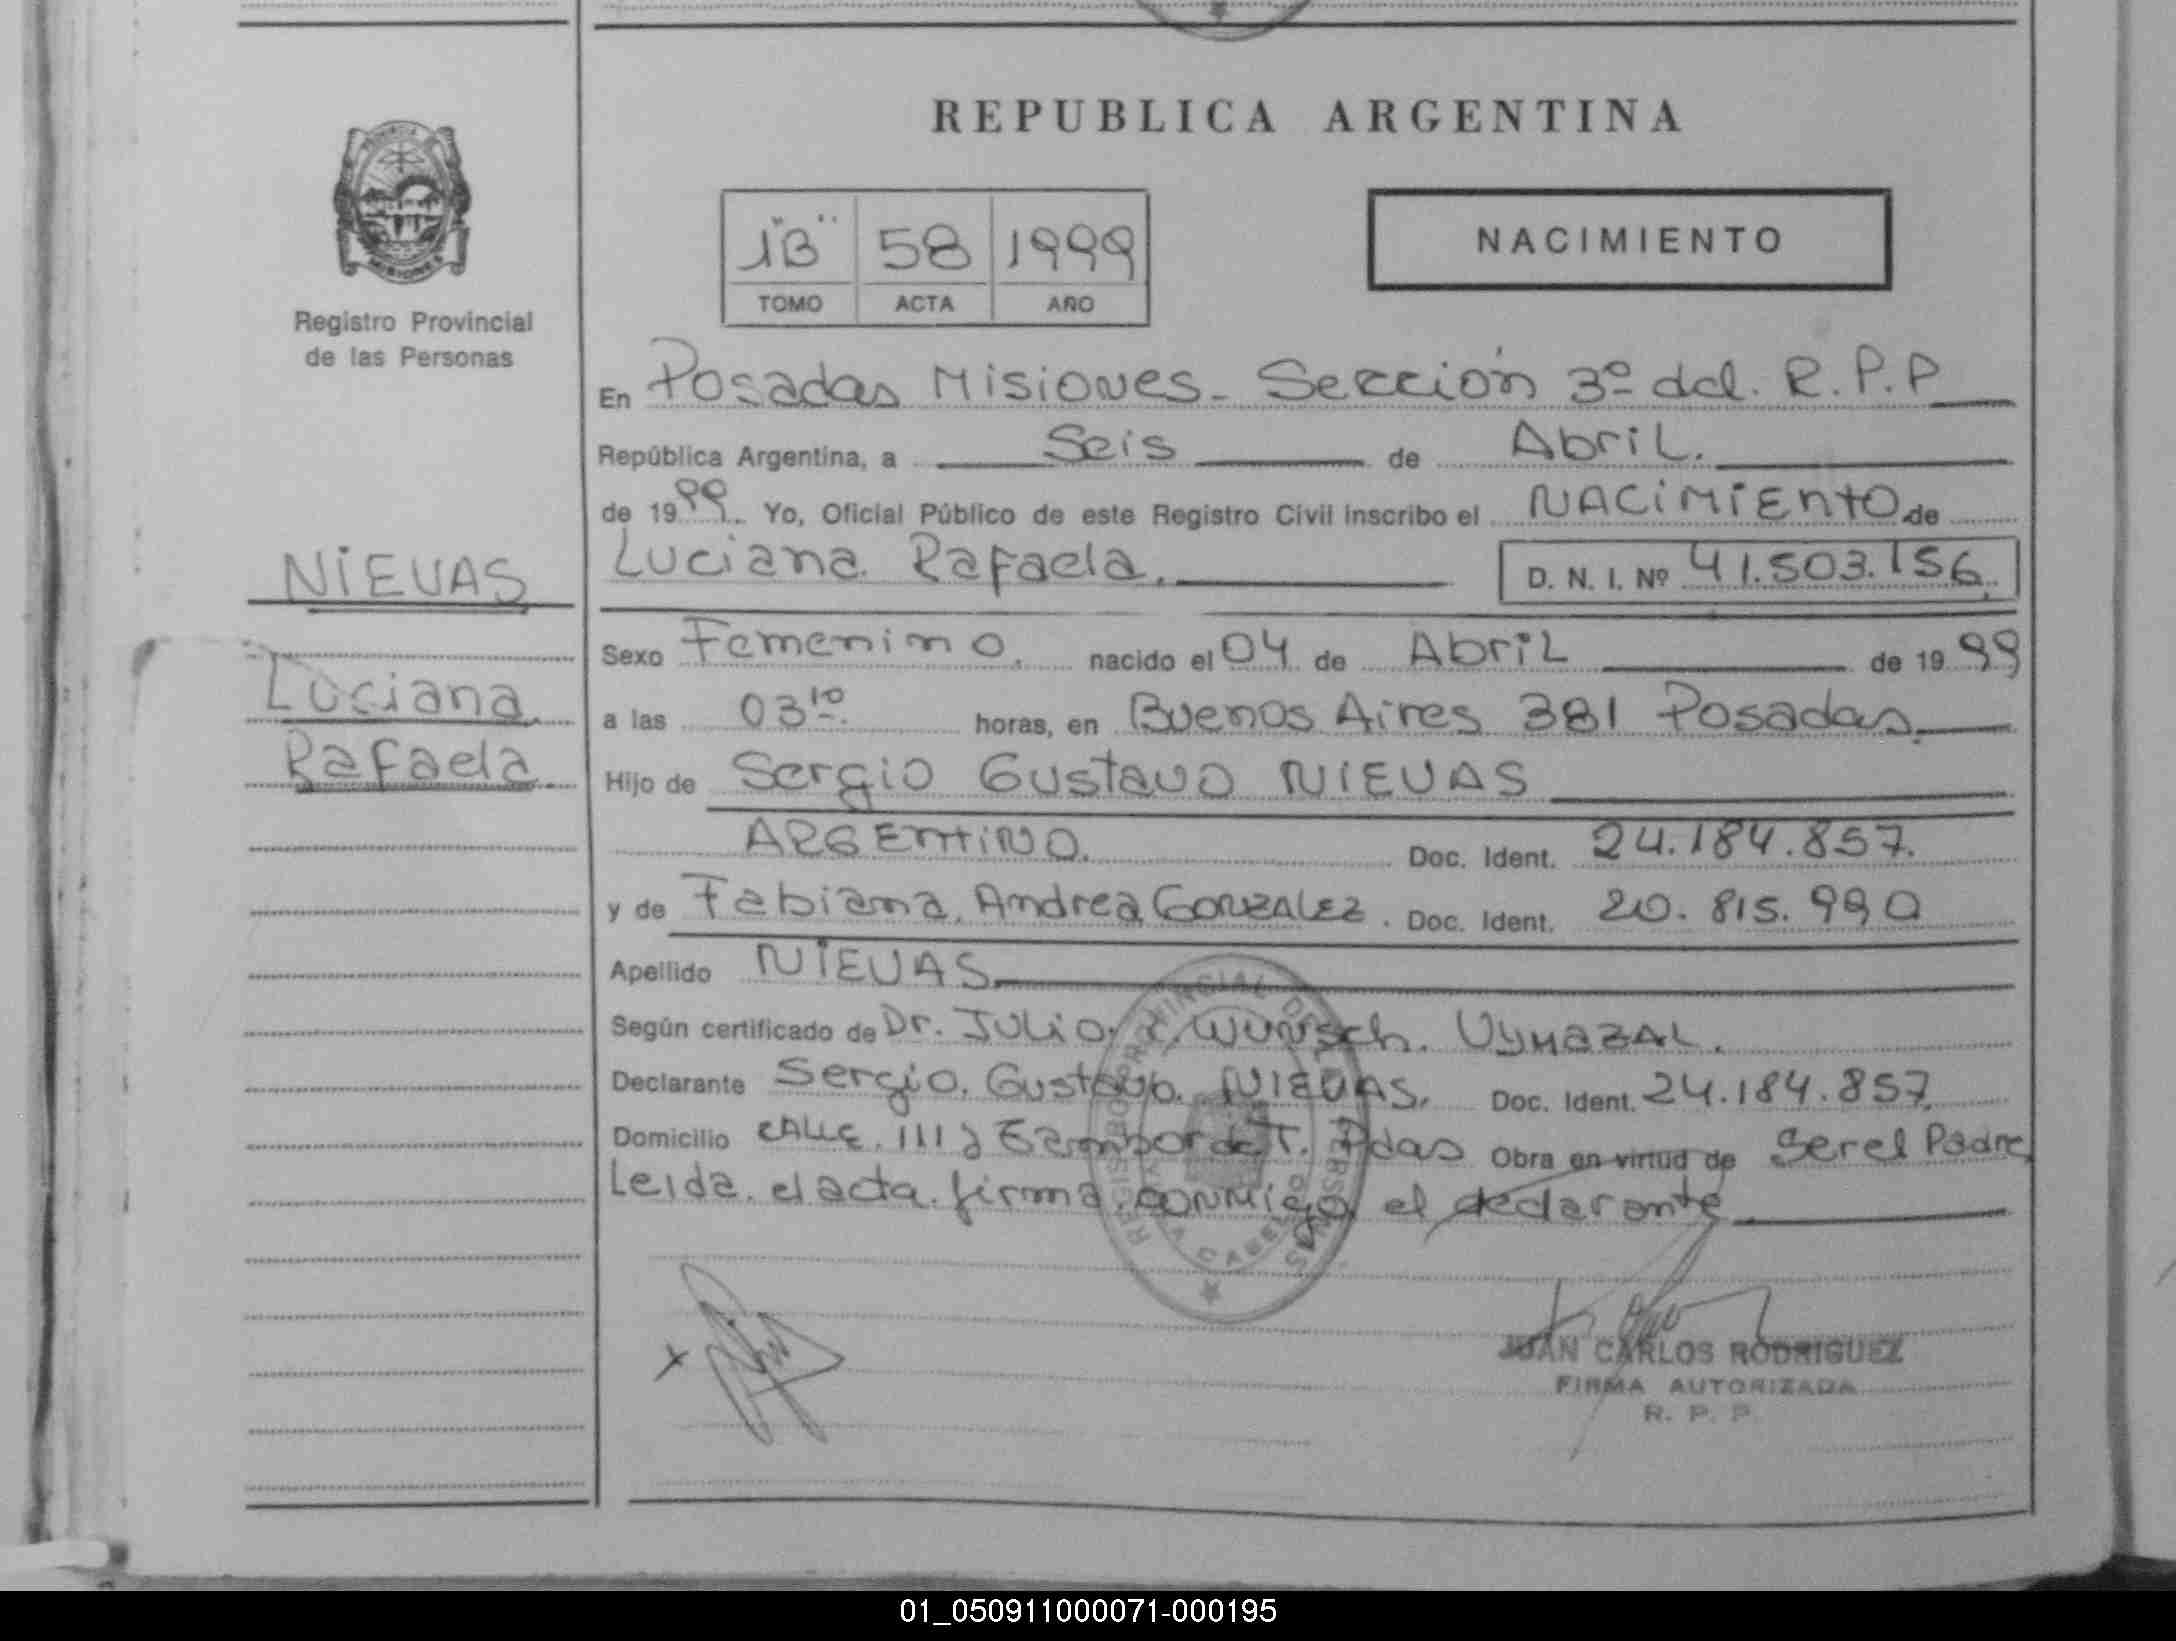 REPUBLICA ARGENTINA
MISIONES
Registro Provincial
de las Personas
1"B" 58 1999
TOMO ACTA AÑO
NACIMIENTO
En Posadas Misiones - Sección 3º del. R.P.P
República Argentina, a Seis de Abril.
de 1999. Yo, Oficial Público de este Registro Civil inscribo el NACIMIENTO de
NIEVAS
Luciana Rafaela. D. N. I. Nº 41.503.156.
Sexo Femenino. nacido el 04 de Abril de 1999
Luciana
a las 03 10. horas, en Buenos Aires 381 Posadas.
Rafaela.
Hijo de Sergio Gustavo NIEVAS
ARGENTINO. Doc. Ident. 24.184.857.
y de Fabiana Andrea GONZALEZ. Doc. Ident. 20.815.990
Apellido NIEVAS
Según certificado de Dr. Julio Wunsch. Vymazal.
Declarante Sergio. Gustavo. NIEVAS. Doc. Ident. 24.184.857.
Domicilio CALLE. 111 Pdas Obra en virtud de Ser el Padre
Leida el acta firma conmigo el declarante
REGISTRO PROVINCIAL DE LAS PERSONAS
JUAN CARLOS RODRIGUEZ
FIRMA AUTORIZADA
R. P. P.
01_050911000071-000195